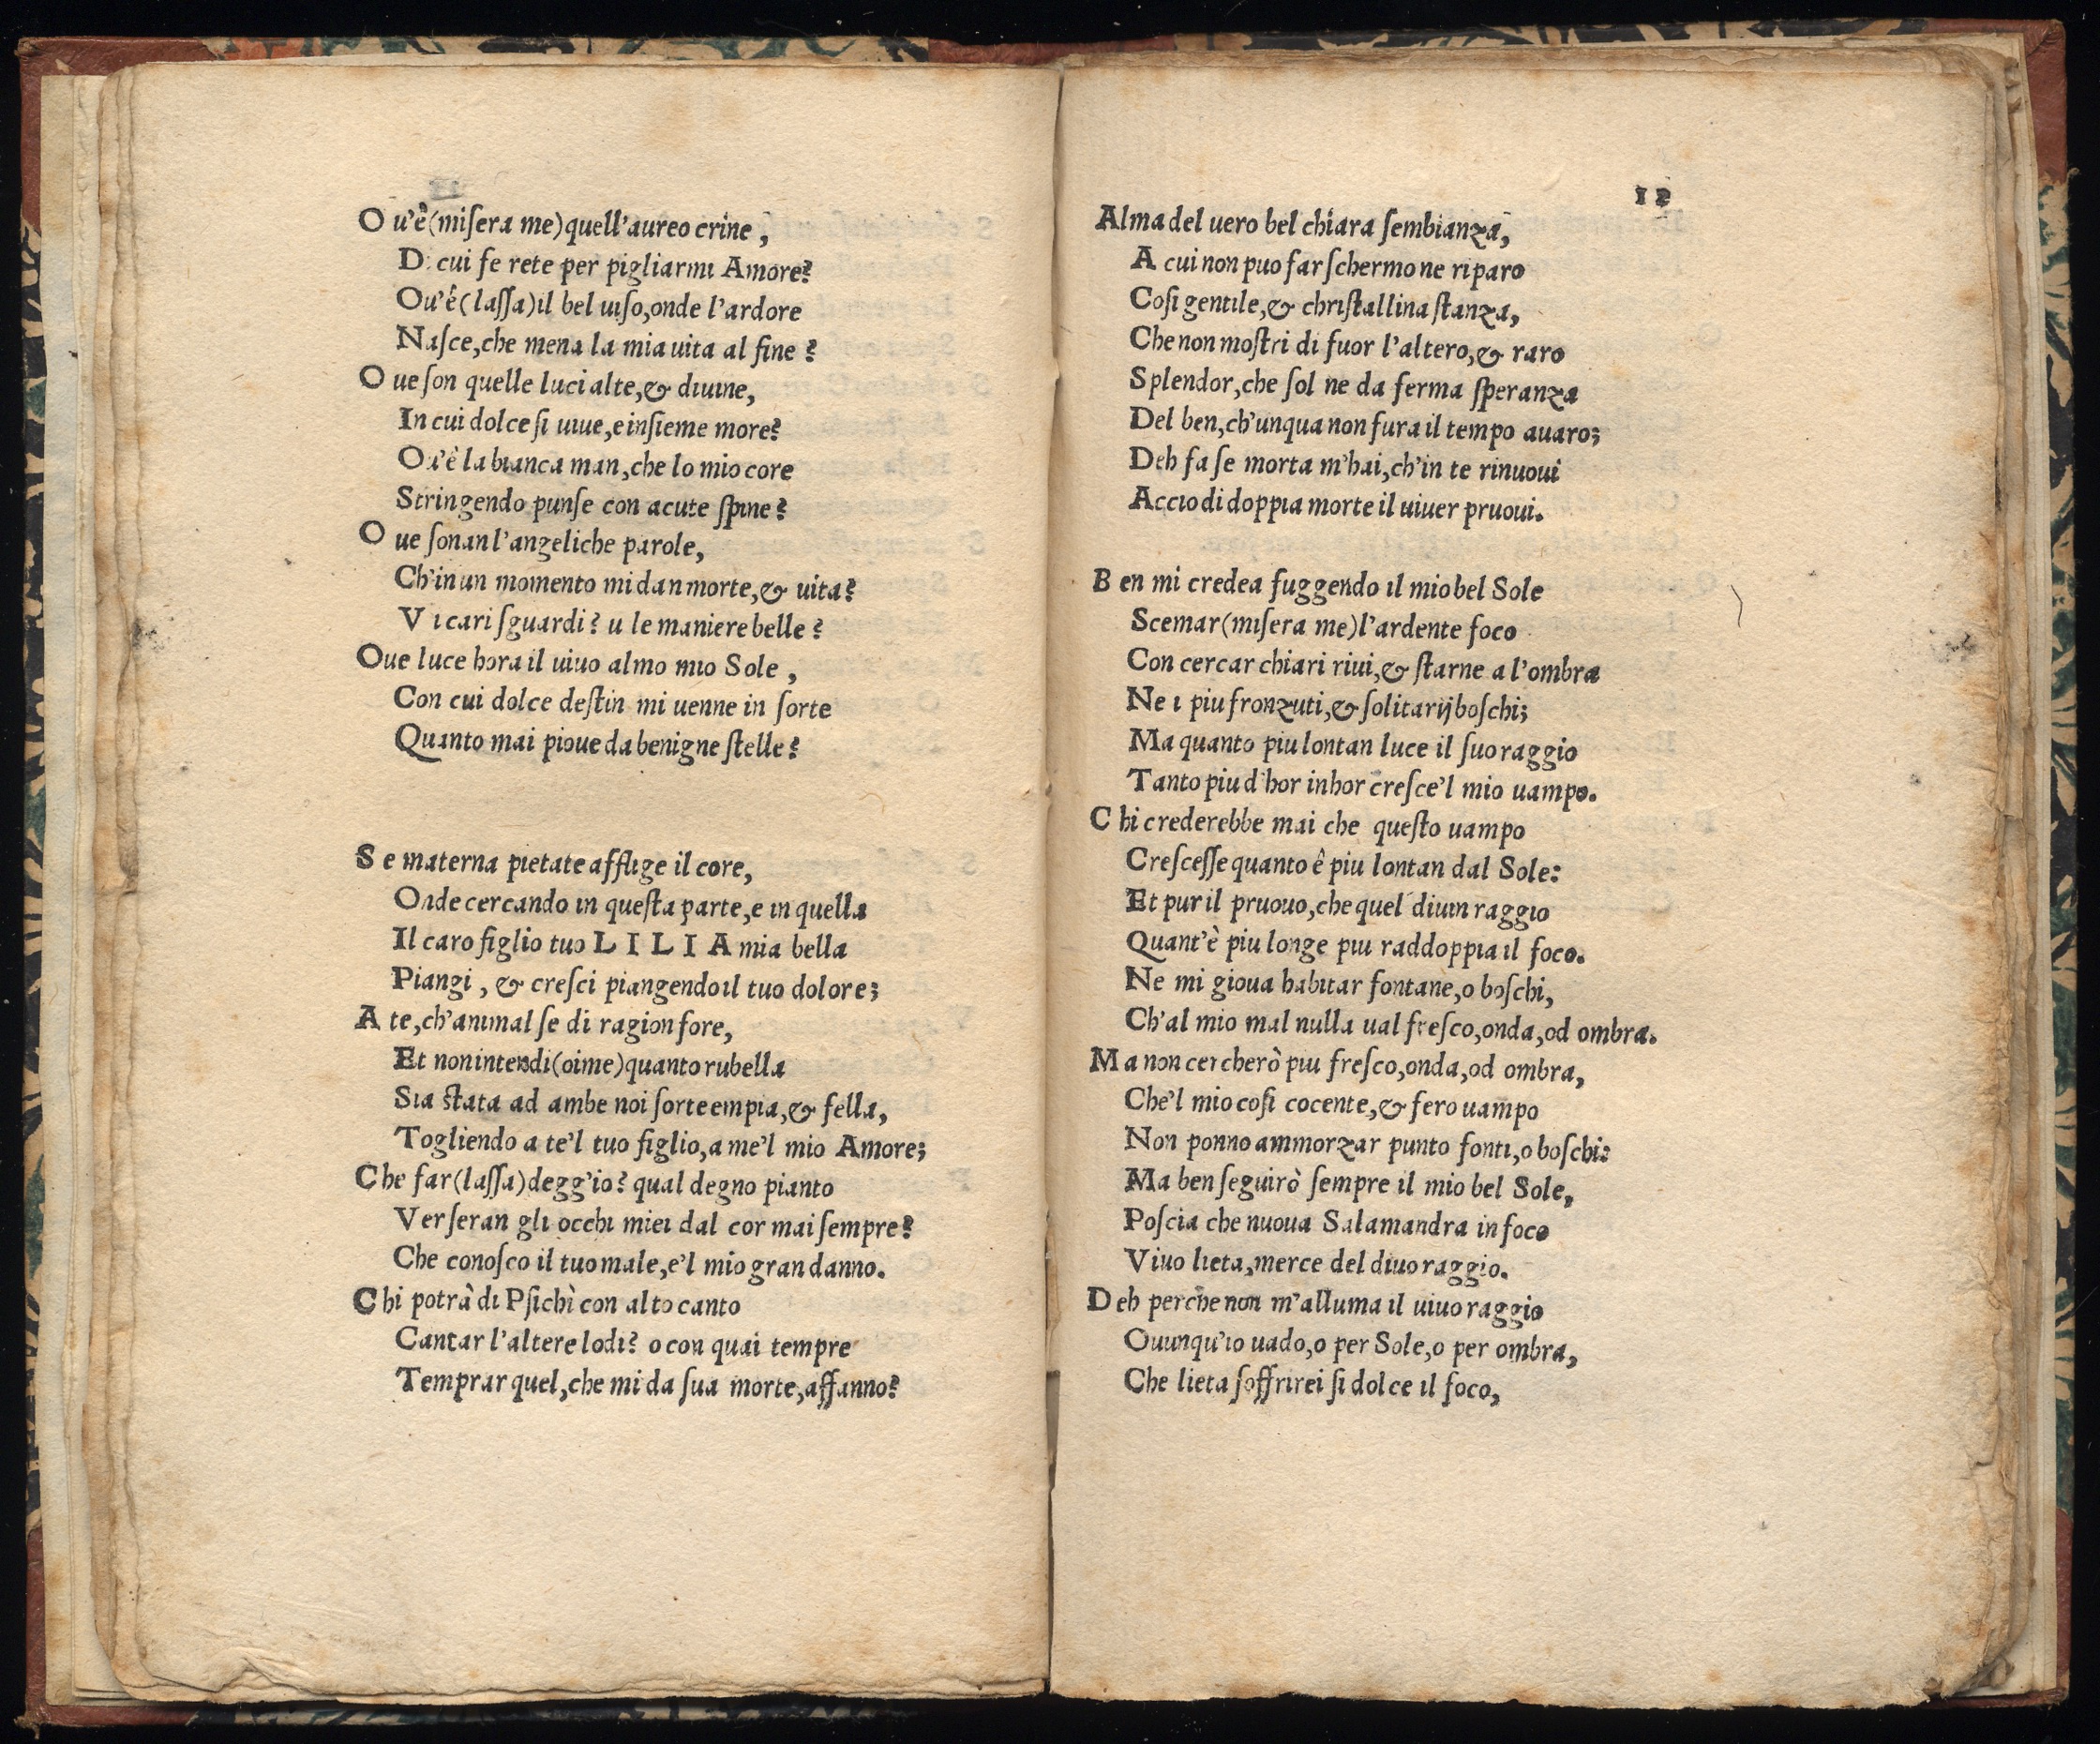 O u'è(miſera me)quell'aureo crine,
Di cui fe rete per pigliarmi Amore?
Ou'ê(laſſa)il bel uiſo,onde l'ardore
Naſce,che mena la mia uita al fine?
O ue ſon quelle luci alte,& diuine,
In cui dolce ſi uiue,e inſieme more?
Ou'è la bianca man,che lo mio core
Stringendo punſe con acute ſpine?
O ue ſonan l'angeliche parole,
Ch'in un momento mi dan morte,& uita?
V i cari ſguardi? u le maniere belle?
Oue luce hora il uiuo almo mio Sole,
Con cui dolce deſtin mi uenne in ſorte
Quanto mai pioue da benigne ſtelle?
S e materna pietate afflige il core,
Onde cercando in queſta parte,e in quella
Il caro figlio tuo L I L I A mia bella
Piangi, & creſci piangendo il tuo dolore;
A te,ch'animal ſe di ragion fore,
Et non intendi(oime)quanto rubella
Sia ſtata ad ambe noi ſorte empia,& fella,
Togliendo a te'l tuo figlio,a me'l mio Amore;
Che far(laſſa)degg'io? qual degno pianto
Verſeran gli occhi miei dal cor mai ſempre?
Che conoſco il tuo male,e'l mio gran danno.
Chi potrà di Pſichì con alto canto
Cantar l'altere lodi? o con quai tempre
Temprar quel,che mi da ſua morte,affanno?
12
Alma del uero bel chiara ſembianza,
A cui non puo far ſchermo ne riparo
Coſi gentile,& chriſtallina ſtanza,
Che non moſtri di fuor l'altero,& raro
Splendor,che ſol ne da ferma ſperanza
Del ben,ch'unqua non fura il tempo auaro;
Deh fa ſe morta m'hai,ch'in te rinuoui
Accio di doppia morte il uiuer pruoui.
B en mi credea fuggendo il mio bel Sole
Scemar(miſera me)l'ardente foco
Con cercar chiari riui,& ſtarne a l'ombra
Ne i piu fronzuti,& ſolitarij boſchi;
Ma quanto piu lontan luce il ſuo raggio
Tanto piu d'hor inhor creſce'l mio uampo.
C hi crederebbe mai che queſto uampo
Creſceſſe quanto ê piu lontan dal Sole:
Et pur il pruouo,che quel diuin raggio
Quant'è piu longe piu raddoppia il foco.
Ne mi gioua habitar fontane,o boſchi,
Ch'al mio mal nulla ual freſco,onda,od ombra.
M a non cercherò piu freſco,onda,od ombra,
Che'l mio coſi cocente,& fero uampo
Non ponno ammorzar punto fonti,o boſchi:
Ma ben ſeguirò ſempre il mio bel Sole,
Poſcia che nuoua Salamandra in foco
Viuo lieta,merce del diuo raggio.
D eh perche non m'alluma il uiuo raggio
Ouunqu'io uado,o per Sole,o per ombra,
Che lieta ſoffrirei ſi dolce il foco,